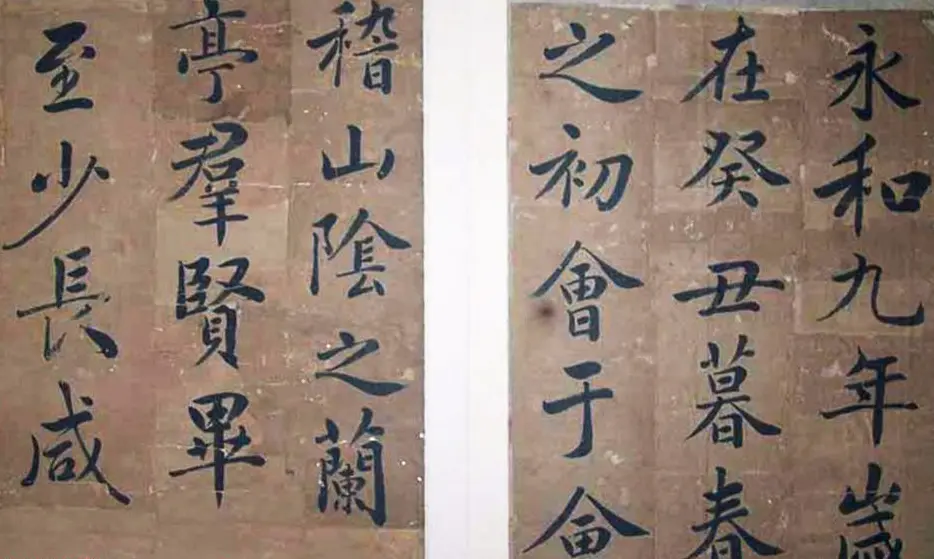 永和九年歲
在癸丑暮春
之初會于會
稽山陰之蘭
亭羣賢畢
至少長咸